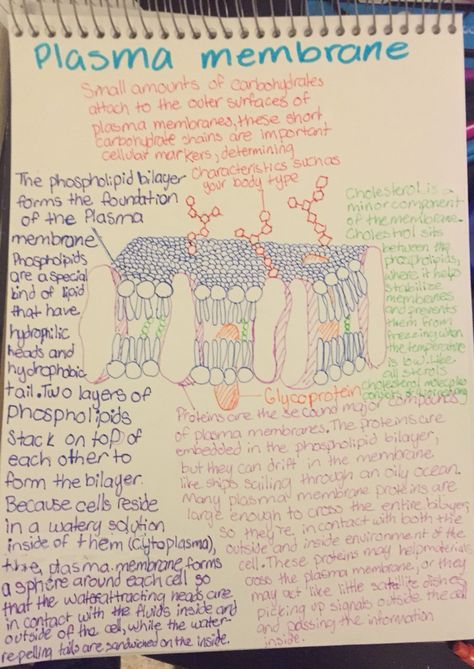 Plasma membrane
Small amounts of carbohydrates
attach to the outer surfaces of
plasma membranes, these short
carbohydrate chains are important
cellular markers, determining
characteristics such as
your body type
The phospholipid bilayer
forms the foundation
of the Plasma
membrane
Phospholipids
are a special
kind of lipid
that have
hydrophilic
heads and
hydrophobic
tail. Two layers of
phospholipids
stack on top of
each other to
form the bilayer.
Because cells reside
in a watery solution
inside of them (cytoplasm),
the plasma membrane forms
a sphere around each cell so
that the water attracting heads are
in contact with the fluids inside and
outside of the cell, while the water-
repelling tails are sandwiched on the inside.
Cholesterol is a
minor component
of the membrane.
Cholestrol sits
between the
phospholipids,
where it helps
stabilize
membranes
and prevents
them from
freezing when
the temperature
is low. like
all sterols
cholesterol molecules
Glycoprotein
Proteins are the second major compound
of plasma membranes. The proteins are
embedded in the phospholipid bilayer,
but they can drift in the membrane
like ships sailing through an oily ocean.
Many plasma membrane proteins are
large enough to cross the entire bilayer,
so they're in contact with both the
outside and inside environment of the
cell. These proteins may help materials
cross the plasma membrane, or they
may act like little satellite dishes,
picking up signals outside the cell
and passing the information
inside.